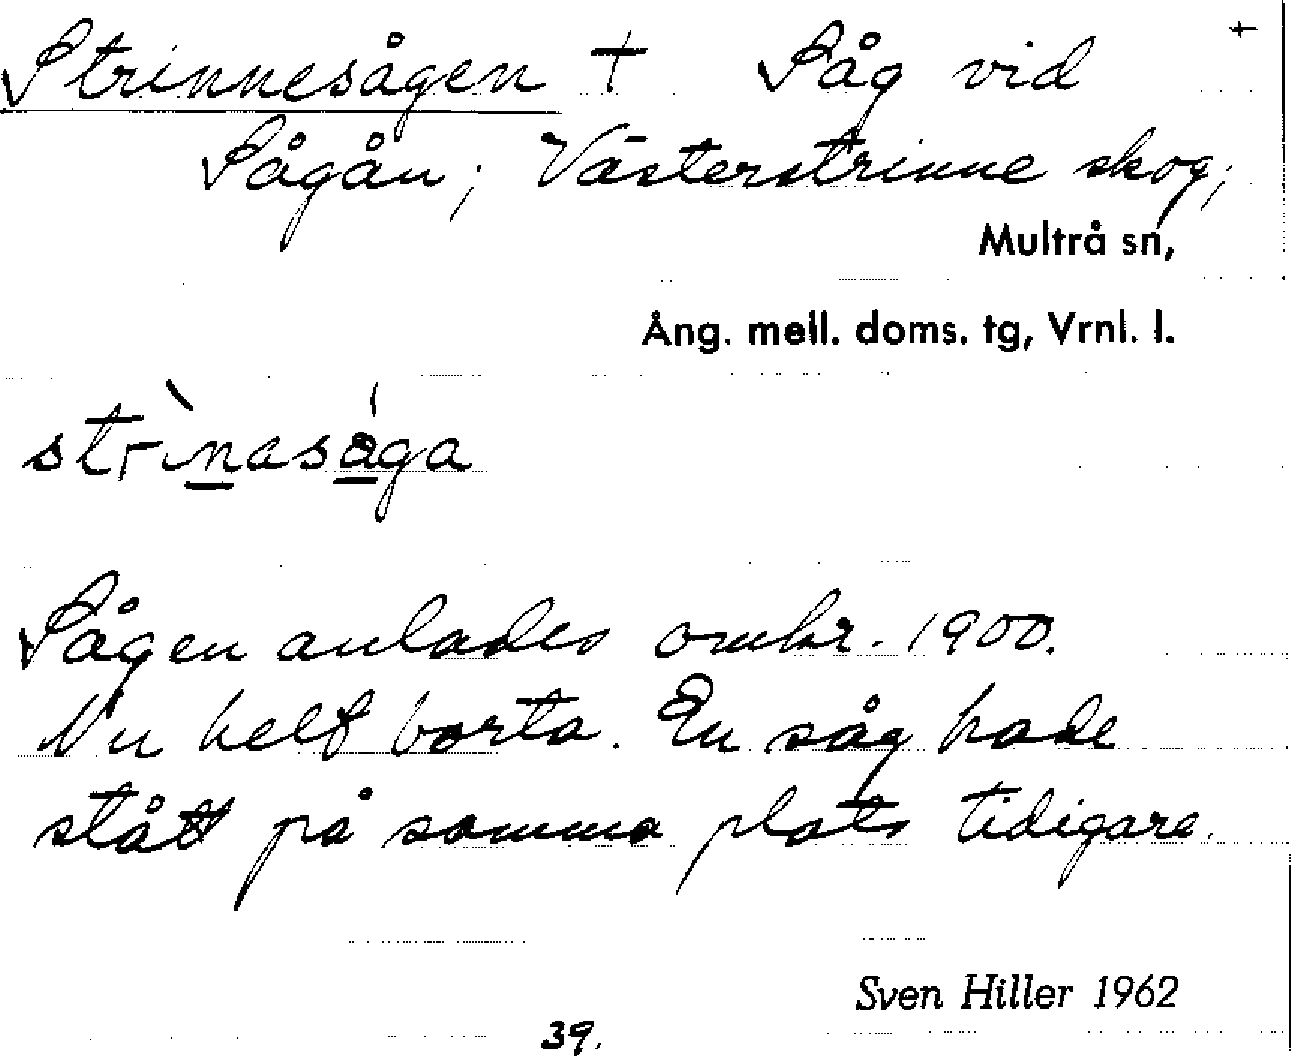 Strinnesågen † Såg vid †
Sågån; Västerstrinne skog;
Multrå sn,
Ång. mell. doms. tg, Vrnl. l.
strìnasåga
Sågen anlades omkr. 1900.
Nu helt borta. En såg hade
stått på samma plats tidigare.
Sven Hiller 1962
39.